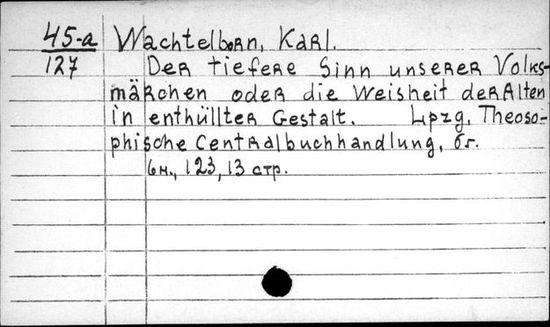 45-a Wachtelborn, Karl.
127 Der tiefere Sinn unserer Volks-
märchen oder die Weisheit der Alten
in enthüllter Gestalt. Lpzg, Theoso-
phische Centralbuchhandlung, бг.
6н., 123, 13 стр.